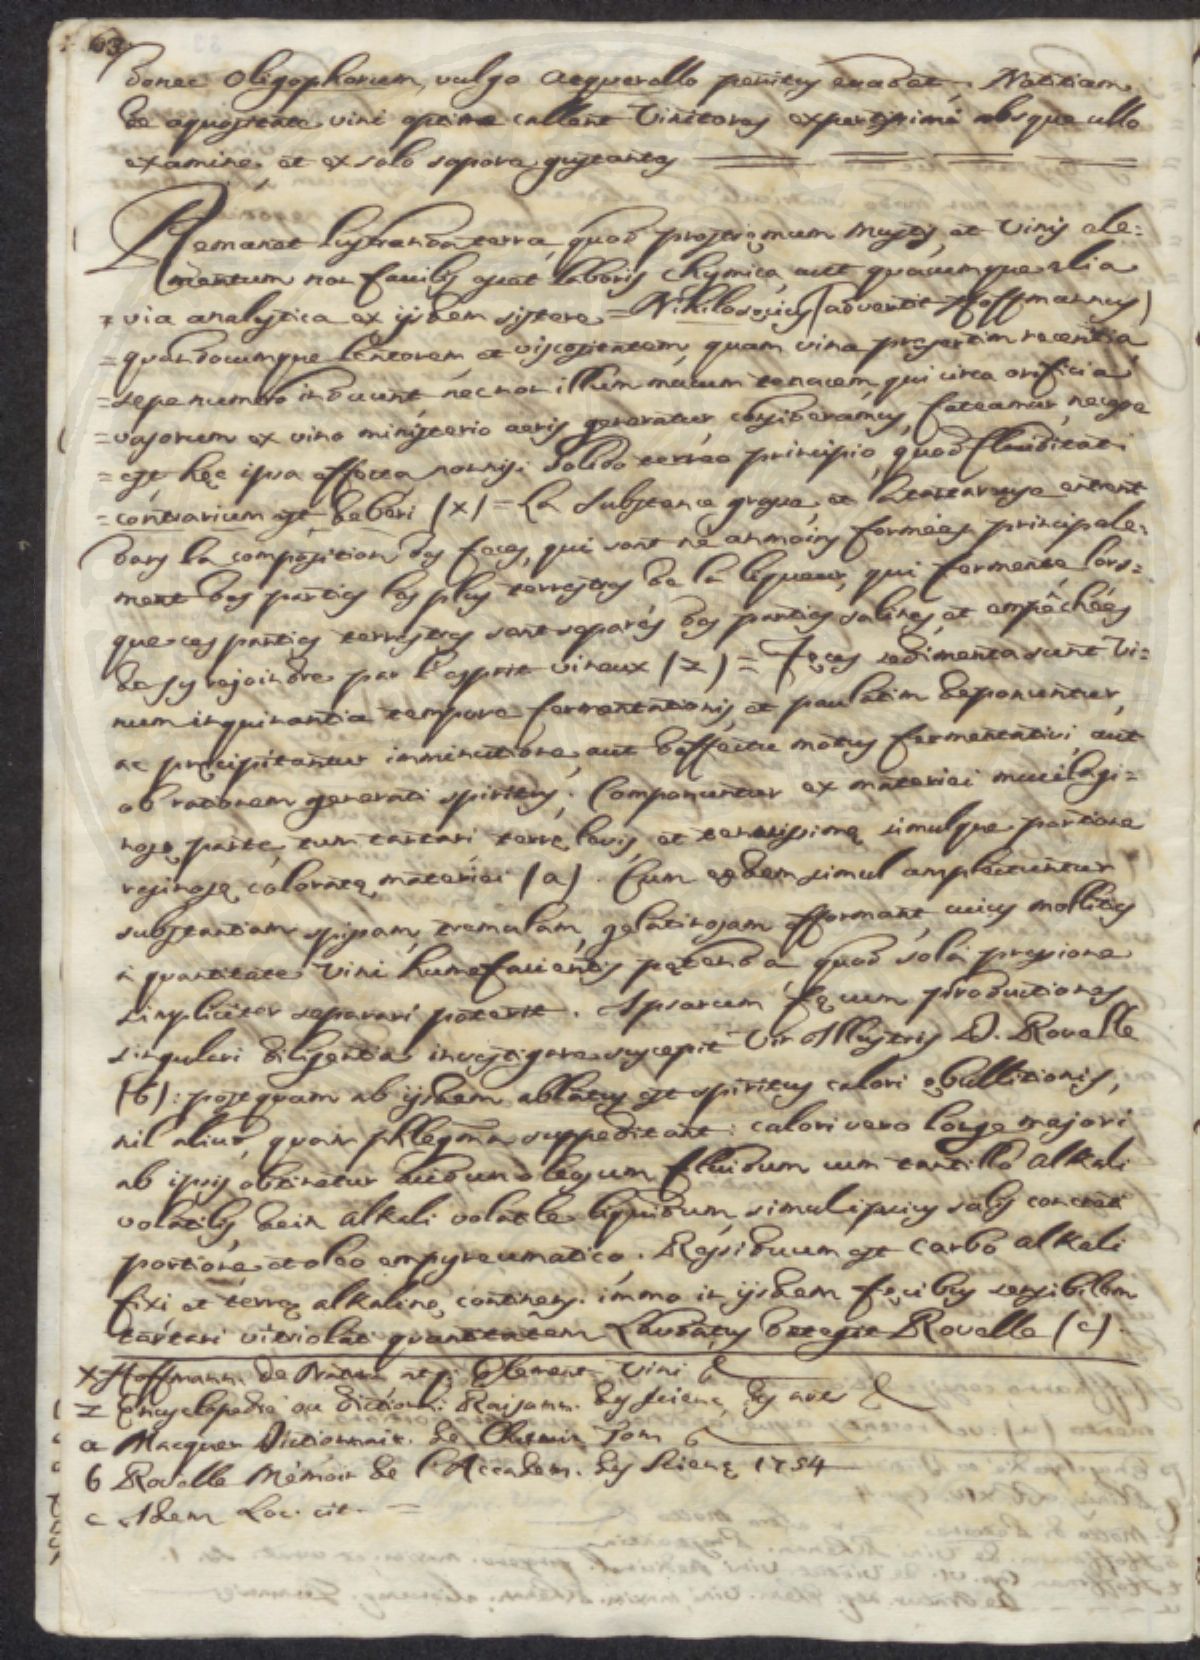 63.
donec Oligophorum, vulgo Acquerello penitus evadat. Notitiam
de aquositate vini optime callent Vinitores expertissimi absque ullo
examine, et ex solo sapore gustantes
Remanet lustranda terra, quod postremum Mustis, et Vinis ele=
mentum non facilis est laboris chymica, aut quacumque alia
= via analytica ex ijsdem sistere = Nihilosecius (advertit Hoffmannus)
= quandocumque lentorem et viscositatem, quam vina presertim recentia,
= sepenumero induunt nec non illum mucum tenacem, qui circa orificia
= vasorum ex vino ministerio aeris generatur, consideramus, fateamur, necesse
= est hęc ipsa effecta nonnisi solido terreo principio, quod fluiditati
= contrarium est, deberi (x) = La Substance grasse, et la tartareuse entrent
dans la composition des feces, qui sont ne anmoins formées principale=
ment des parties les plus terrestres de la liqueur, qui fermente lors=
que ces parties terrestres sont separés des parties salines, et empêchées
de s'y rejoindre par l'esprit vineux (z) = Fęces sedimenta sunt Vi=
num inquinantia tempore fermentationis, et paulatim deponuntur,
ac pręcipitantur imminutione, aut defectu motus fermentativi, aut
ob rationem generati spiritus. Componuntur ex materiei mucilagi=
nosę parte, tum tartari terrę levis, et tenuissimę simulque portione
resinosę coloratę materiei (a). Cum eędem simul amplectuntur
substantiam spissam, tremulam, gelatinosam efformant, cuius mollities
a quantitate Vini humefacientis pętenda, quod sola pressione
simpliciter separari poterit. Ipsarum fęcum productiones
singulari diligentia investigare suscepit Vir Illustris D. Rouelle
(b): postquam ab ijsdem ablatus est spiritus calori ębullitionis,
nil aliud, quam phlegma suppeditant: calori vero longe majori
ab ipsis obtinetur acidum oleosum fluidum cum tantillo alkali
volatilis, dein alkali volatile liquidum, simul ipsius salis concreti
portione, et oleo empyreumatico. Residuum est Carbo alkali
fixi et terrę alkalinę continens. immo in ijsdem fęcibus sensibilem
tartari vitriolati quantitatem Laudatus detegit Rouelle (c).
x Hoffmann. de Natur. et Element. Vini &
z Encyclopedie ou diction. Raisonn. des Scienc. des arts &
a Macquer Dictionnair. de Chemie Tom
b Rouelle Memoir de l'Accadem. des Scienc. 1754
c Idem Loc. cit. =